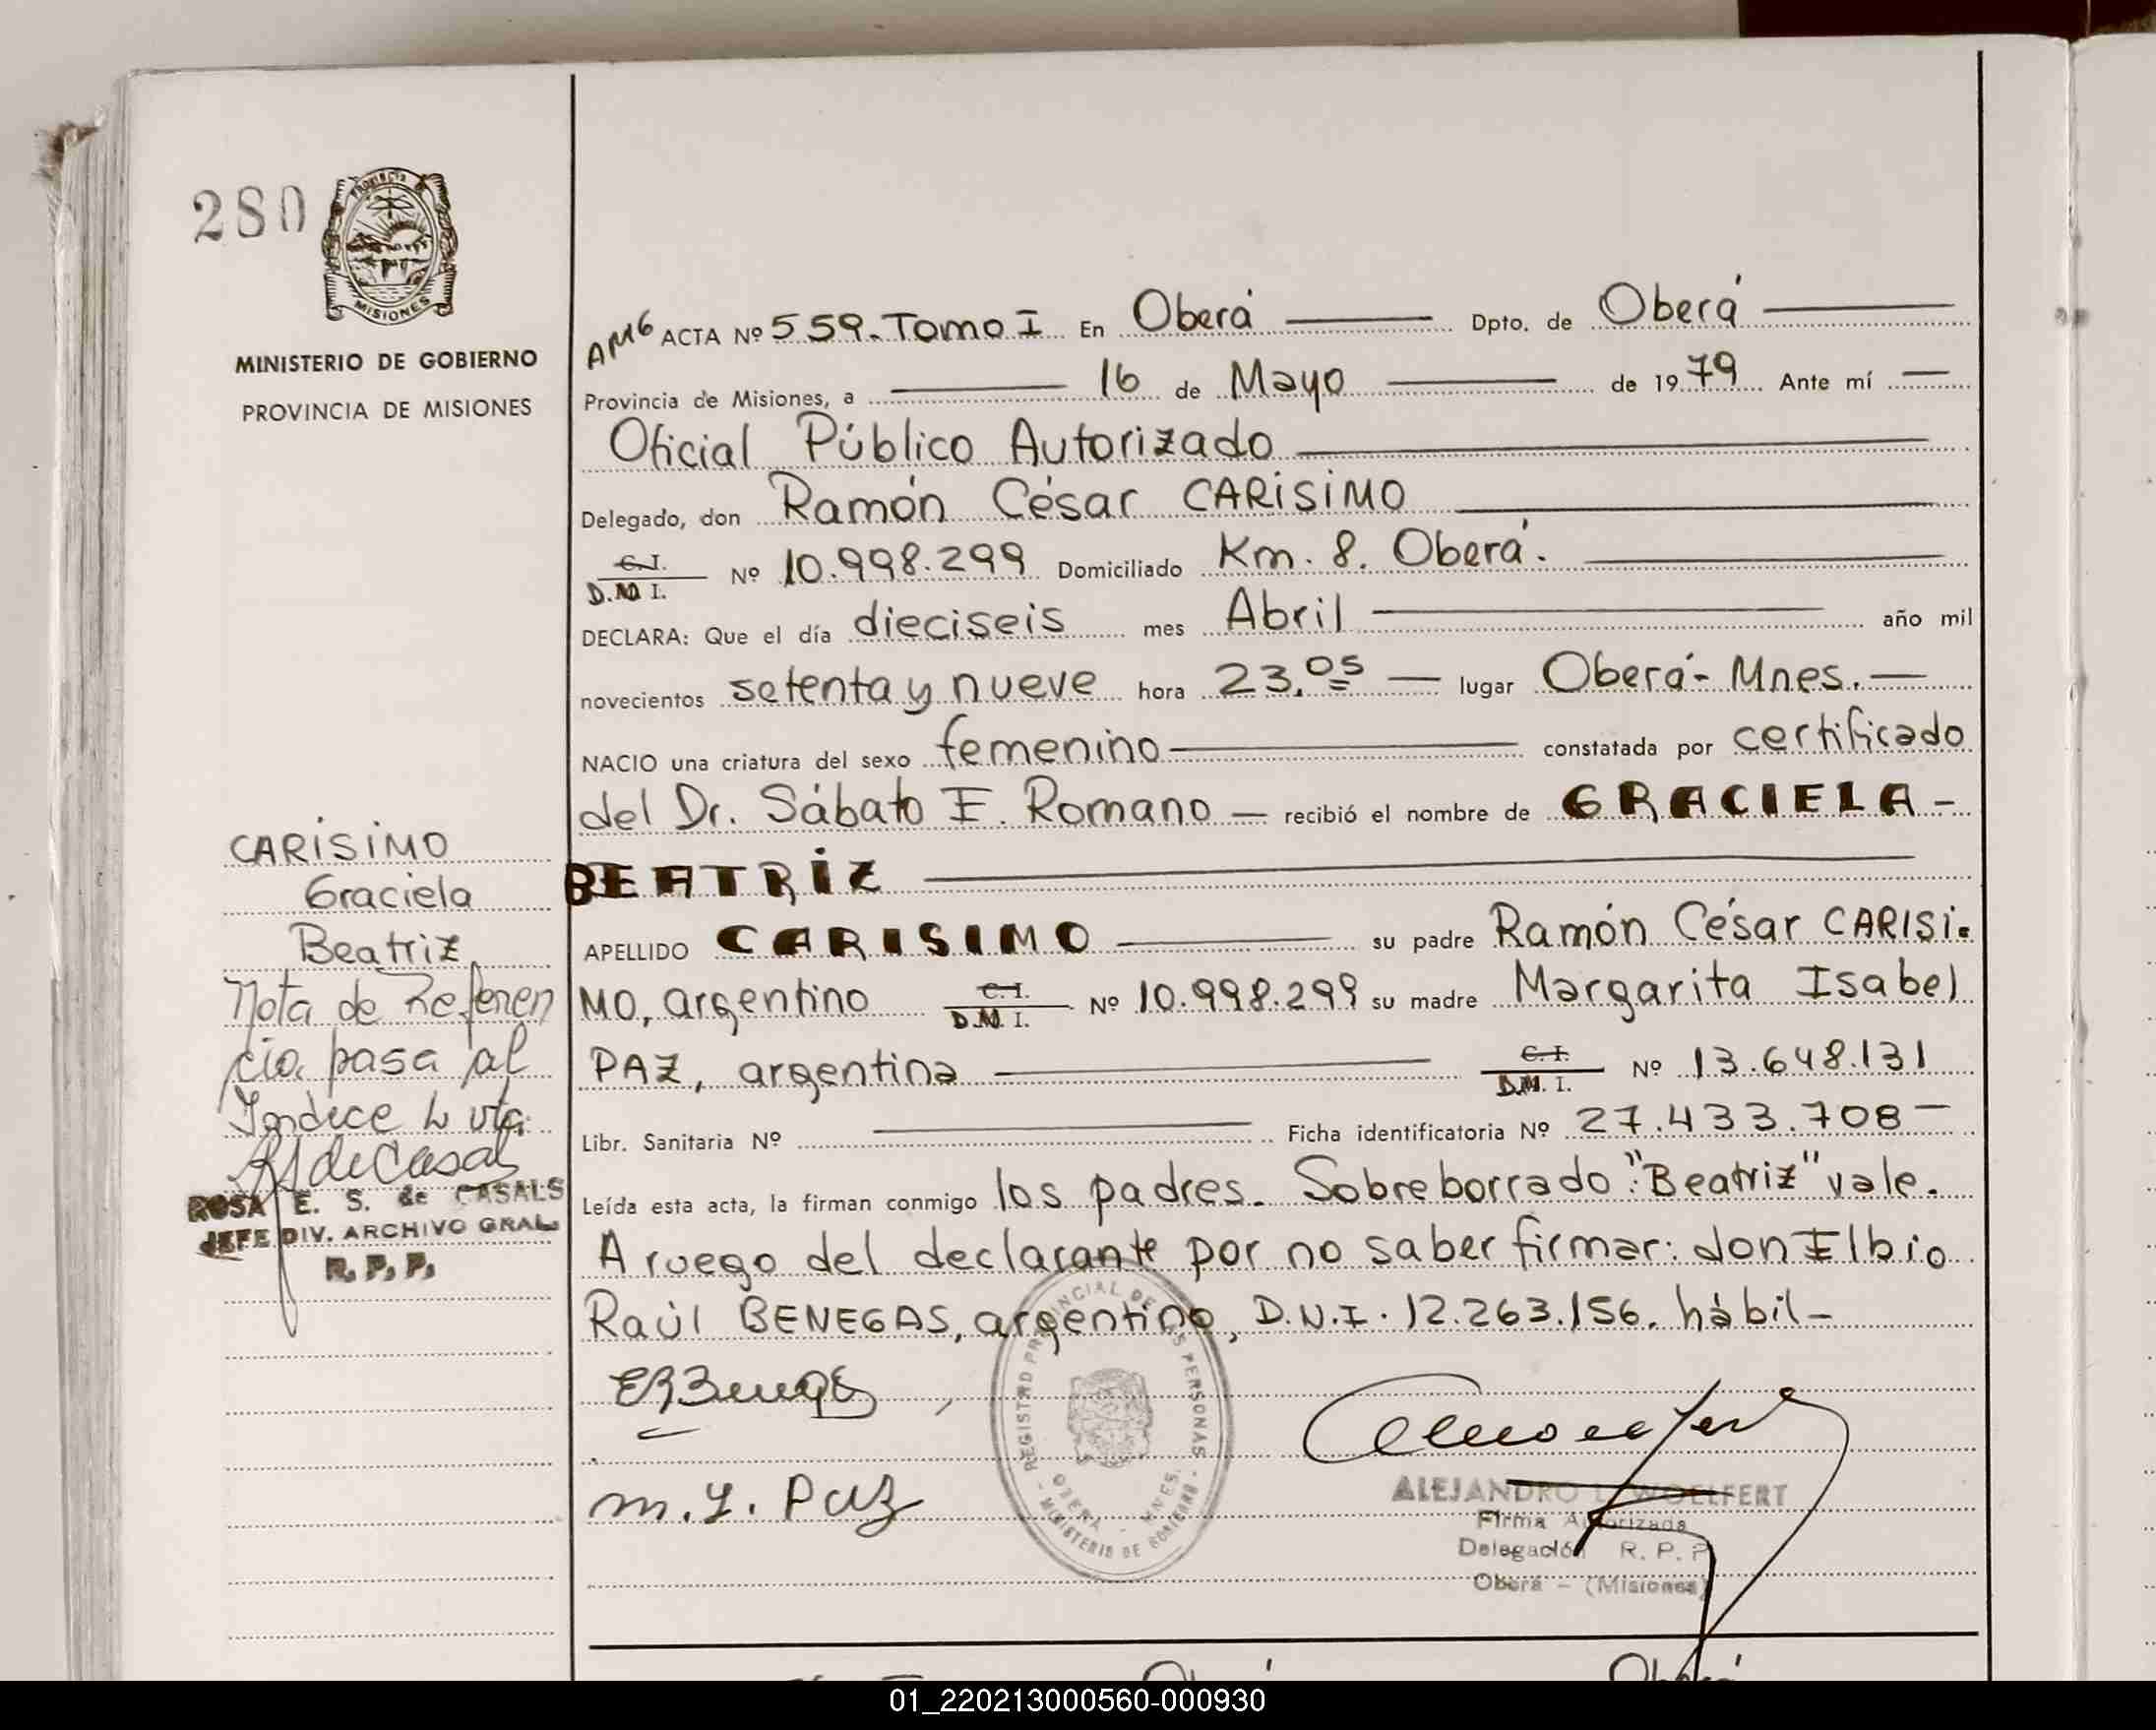 280
PROVINCIA
MISIONES
MINISTERIO DE GOBIERNO
PROVINCIA DE MISIONES
AM6 ACTA Nº 559. Tomo I En Oberá Dpto. de Oberá
Provincia de Misiones, a 16 de Mayo de 1979 Ante mí
Oficial Público Autorizado
Delegado, don Ramón César CARISIMO
C.I.
D.N.I. Nº 10.998.299 Domiciliado Km. 8. Oberá.
DECLARA: Que el día dieciseis mes Abril año mil
novecientos setenta y nueve hora 23,05 lugar Oberá- Mnes.
NACIO una criatura del sexo femenino constatada por certificado
del Dr. Sábato E. Romano recibió el nombre de GRACIELA-
BEATRIZ
APELLIDO CARISIMO su padre Ramón César CARISI-
MO, argentino C.I. D.N.I. Nº 10.998.299 su madre Margarita Isabel
PAZ, argentina C.I. D.N.I. Nº 13.648.131
Libr. Sanitaria Nº Ficha identificatoria Nº 27.433.708-
Leída esta acta, la firman conmigo los padres. Sobreborrado: "Beatriz" vale.
A ruego del declarante por no saber firmar: don Elbio
Raúl BENEGAS, argentino, D.N.I. 12.263.156. hábil-
CARISIMO
Graciela
Beatriz
Nota de Referen
cia pasa al
Indice
ROSA E. S. de CASALS
JEFE DIV. ARCHIVO GRAL.
R. P. P.
M. Y. Paz
REGISTRO PROVINCIAL DE LAS PERSONAS
OBERA - MNES.
MINISTERIO DE GOBIERNO
ALEJANDRO L. WOLLFERT
Firma Autorizada
Delegación R. P. P.
Oberá - (Misiones)
Oberá Oberá
01_220213000560-000930